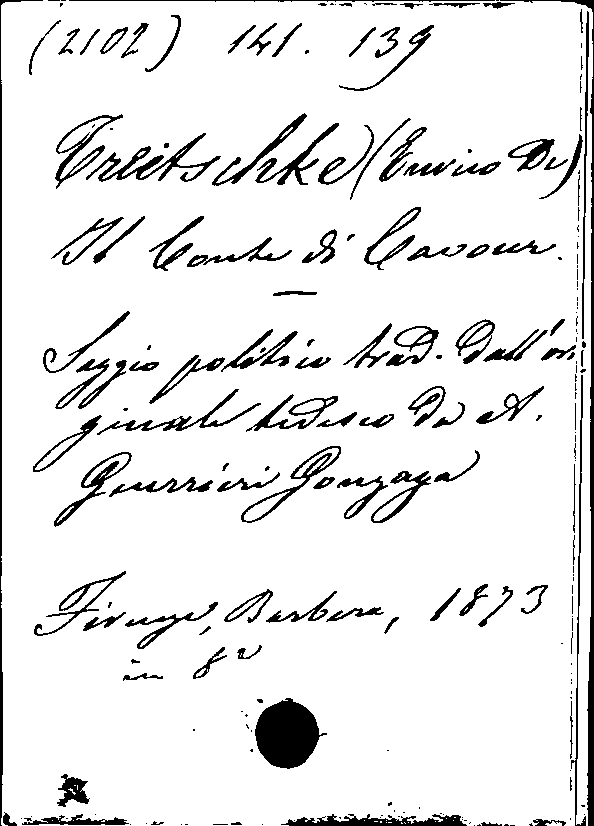 (2102) 141. 139
Treitschke (Enrico De)
Il Conte di Cavour.
Saggio politico trad. dall'ori
ginale tedesco da A.
Guerrieri Gonzaga
Firenze, Barbera, 1873
in 8º